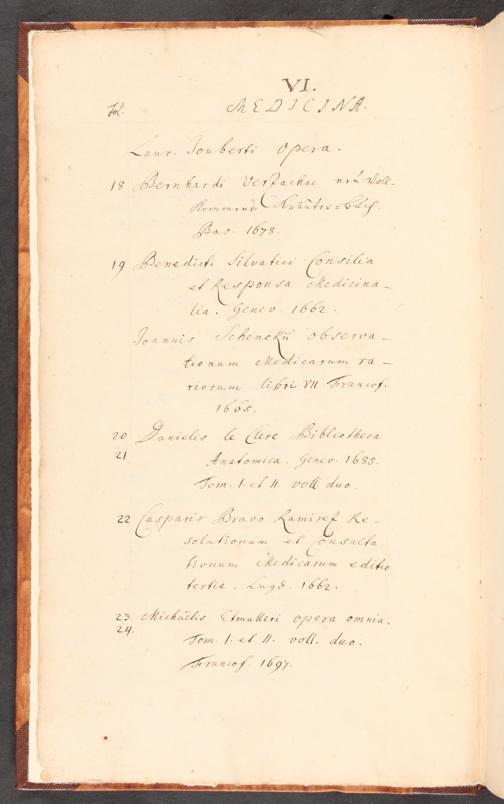 VI.
Fol. MEDICINA.
Laur. Jouberti Opera.
18 Bernhardi Verzachae neü Voll-
Kommens Kräuter=Büch.
Bas. 1678.
19 Benedicti Silvatici Consilia
et Responsa Medicina-
lia. Genev. 1662.
Joannis Schenckii observa-
tionum Medicarum ra-
riorum libri VII. Francof.
1665.
20 Danielis le Clerc Bibliotheca
21 Anatomica. Genev. 1685.
Tom. I. et II. voll duo.
22 Casparis Bravo Ramiref Re-
solutionum et Consulta
tionum Medicarum editio
tertia. Lugd. 1662.
23. Michäelis Etmulleri opera omnia.
24. Tom. I. et II. voll. duo.
Francof. 1697.